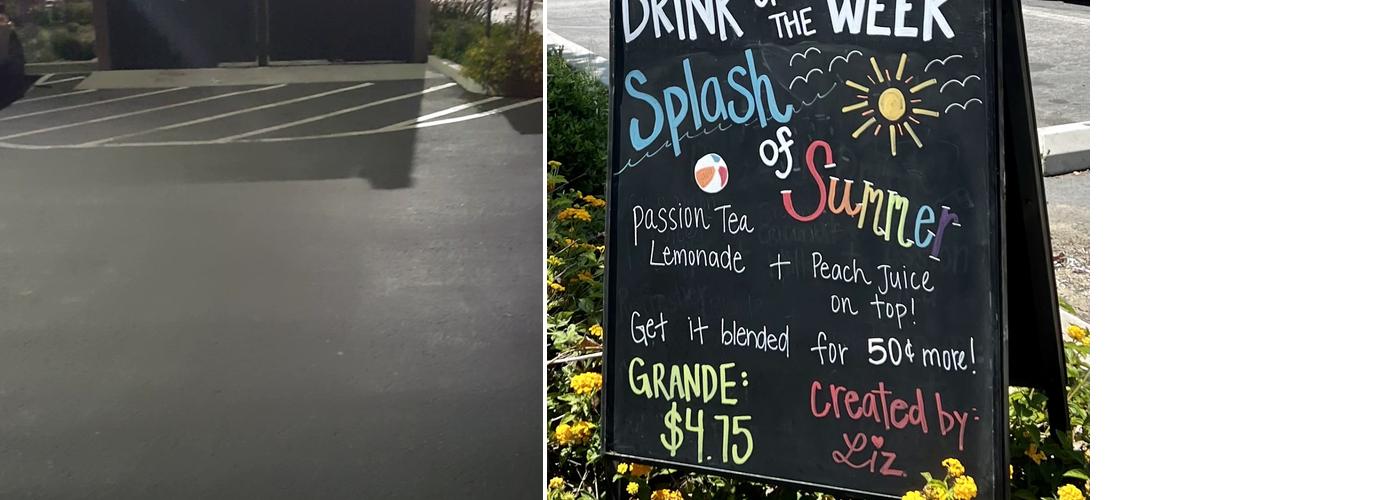 DRINK OF THE WEEK
Splash
of
Summer
Passion Tea
Lemonade + Peach Juice
on top!
Get it blended for 50¢ more!
GRANDE: created by:
$4.75 Liz